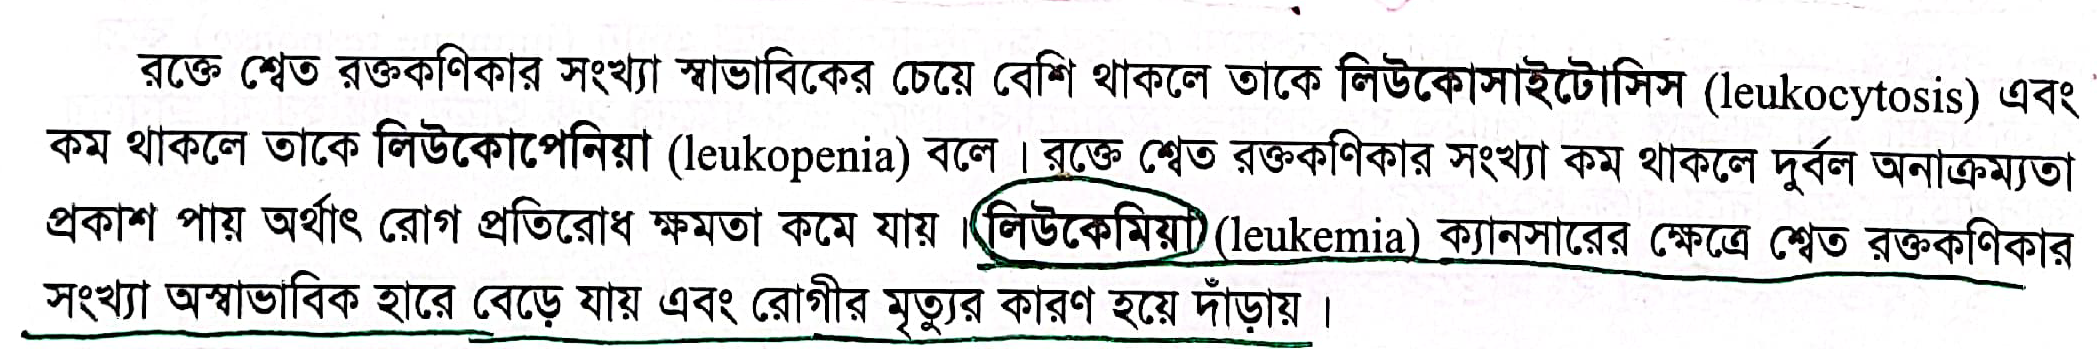 রক্তে শ্বেত রক্তকণিকার সংখ্যা স্বাভাবিকের চেয়ে বেশি থাকলে তাকে লিউকোসাইটোসিস (leukocytosis) এবং
কম থাকলে তাকে লিউকোপেনিয়া (leukopenia) বলে। রক্তে শ্বেত রক্তকণিকার সংখ্যা কম থাকলে দুর্বল অনাক্রম্যতা
প্রকাশ পায় অর্থাৎ রোগ প্রতিরোধ ক্ষমতা কমে যায়। লিউকেমিয়া (leukemia) ক্যানসারের ক্ষেত্রে শ্বেত রক্তকণিকার
সংখ্যা অস্বাভাবিক হারে বেড়ে যায় এবং রোগীর মৃত্যুর কারণ হয়ে দাঁড়ায়।